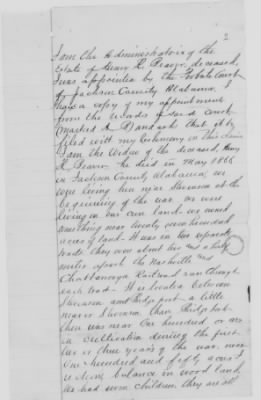 2
I am the Administratrix of the
Estate of Henry L. deceased,
I was appointed by the Probate Court
of Jackson County Alabama, I
have a copy of my appointment
from the records of said Court
(marked A) and ask that it be
filed with my testimony in this
I am the Widow of the deceased, Henry
L. he died in May 1866
in Jackson County, Alabama, we
were living near Stevenson at the
beginning of the war. we were
living on our own land. we owned
something near twenty hundred
acres of land. It was in two separate
tracts they were about two and a half
miles apart the Nashville and
Chattanooga Railroad ran through
each tract. It is located between
Stevenson and Bridgeport a little
nearer Stevenson than Bridgeport
there was near One hundred
in cultivation during the first
two or three years of the war, near
One hundred and fifty acres
balance in wood land
We had seven children. they are all